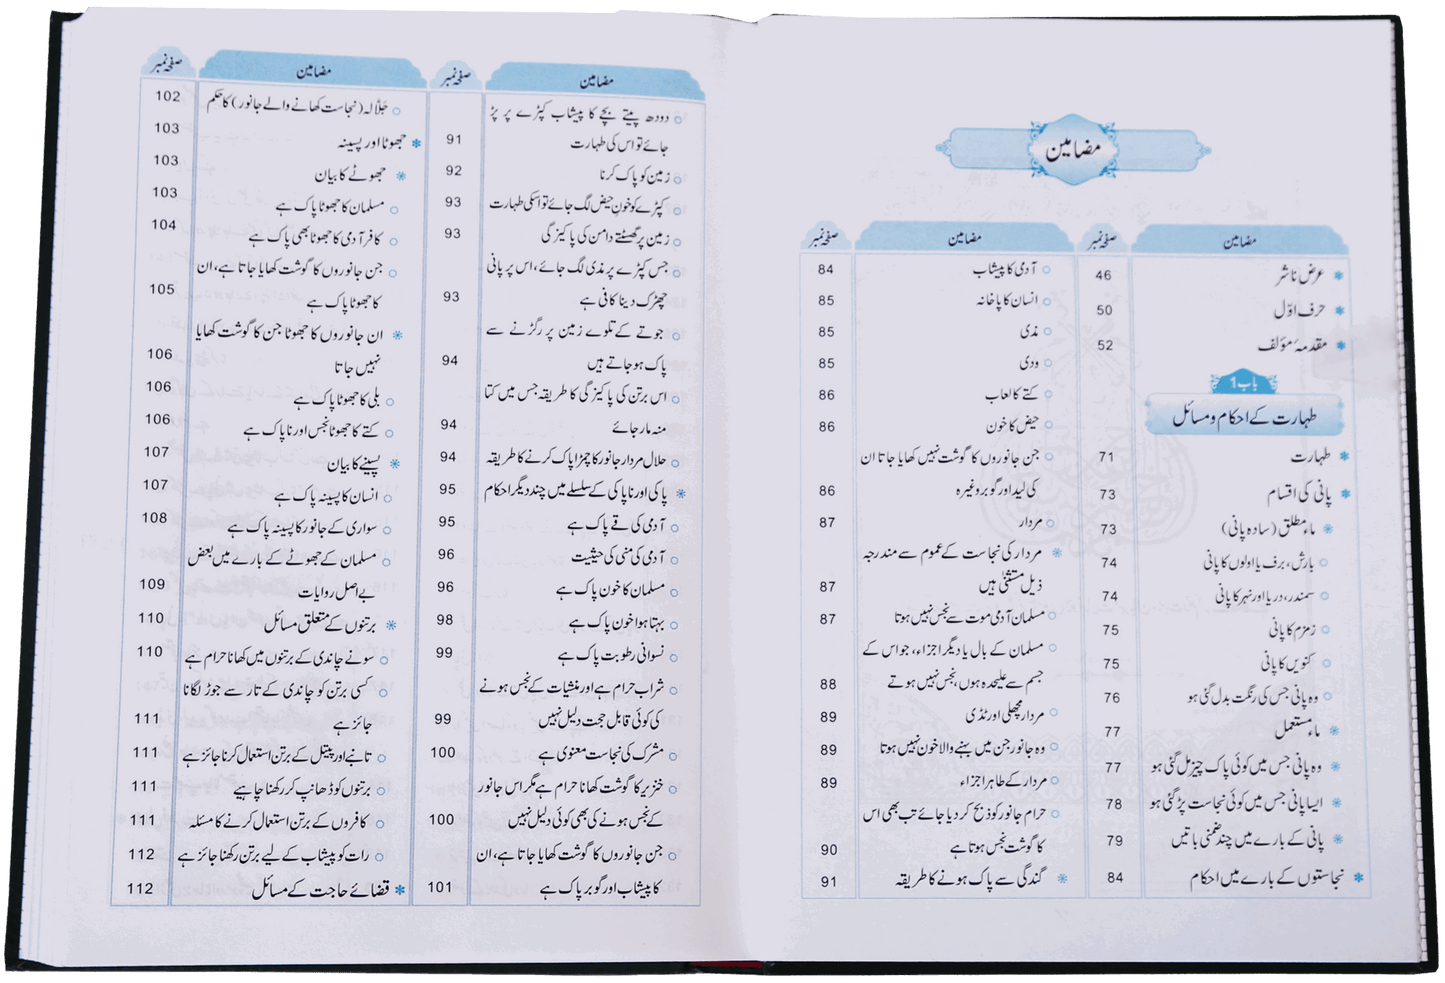 مضامین
مضامین صفحہ نمبر
عرض ناشر 46
حرف اوّل 50
مقدمۂ مؤلف 52
باب 1
طہارت کے احکام و مسائل
طہارت 71
پانی کی اقسام 73
ماءِ مطلق (سادہ پانی) 73
بارش، برف یا اولوں کا پانی 74
سمندر، دریا اور نہر کا پانی 74
زمزم کا پانی 75
کنویں کا پانی 75
وہ پانی جس کی رنگت بدل گئی ہو 76
ماء مستعمل 77
وہ پانی جس میں کوئی پاک چیز مل گئی ہو 77
ایسا پانی جس میں کوئی نجاست پڑ گئی ہو 78
پانی کے بارے میں چند ضمنی باتیں 79
نجاستوں کے بارے میں احکام 84
مضامین صفحہ نمبر
آدمی کا پیشاب 84
انسان کا پاخانہ 85
مذی 85
ودی 85
کتے کا لعاب 86
حیض کا خون 86
جن جانوروں کا گوشت نہیں کھایا جاتا ان
کی لید اور گوبر وغیرہ 86
مردار 87
مردار کی نجاست کے عموم سے مندرجہ
ذیل مستثنیٰ ہیں 87
مسلمان آدمی موت سے نجس نہیں ہوتا 87
مسلمان کے بال یا دیگر اجزاء، جو اس کے
جسم سے علیحدہ ہوں، نجس نہیں ہوتے 88
مردار مچھلی اور ٹڈی 89
وہ جانور جن میں بہنے والا خون نہیں ہوتا 89
مردار کے طاہر اجزاء 89
حرام جانور کو ذبح کر دیا جائے تب بھی اس
کا گوشت نجس ہوتا ہے 90
گندگی سے پاک ہونے کا طریقہ 91
مضامین صفحہ نمبر
دودھ پیتے بچے کا پیشاب کپڑے پر پڑ
جائے تو اس کی طہارت 91
زمین کو پاک کرنا 92
کپڑے کو خونِ حیض لگ جائے تو اسکی طہارت 93
زمین پر گھسٹتے دامن کی پاکیزگی 93
جس کپڑے پر مذی لگ جائے، اس پر پانی
چھڑک دینا کافی ہے 93
جوتے کے تلوے زمین پر رگڑنے سے
پاک ہو جاتے ہیں 94
اس برتن کی پاکیزگی کا طریقہ جس میں کتا
منہ مار جائے 94
حلال مردار جانور کا چمڑا پاک کرنے کا طریقہ 94
پاکی اور ناپاکی کے سلسلے میں چند دیگر احکام 95
آدمی کی قے پاک ہے 95
آدمی کی منی کی حیثیت 96
مسلمان کا خون پاک ہے 96
بہتا ہوا خون پاک ہے 98
نسوانی رطوبت پاک ہے 99
شراب حرام ہے اور منشیات کے نجس ہونے
کی کوئی قابل حجت دلیل نہیں 99
مشرک کی نجاست معنوی ہے 100
خنزیر کا گوشت کھانا حرام ہے مگر اس جانور
کے نجس ہونے کی بھی کوئی دلیل نہیں 100
جن جانوروں کا گوشت کھایا جاتا ہے، ان
کا پیشاب اور گوبر پاک ہے 101
مضامین صفحہ نمبر
جلّالہ (نجاست کھانے والے جانور) کا حکم 102
جھوٹا اور پسینہ 103
جھوٹے کا بیان 103
مسلمان کا جھوٹا پاک ہے 103
کافر آدمی کا جھوٹا بھی پاک ہے 104
جن جانوروں کا گوشت کھایا جاتا ہے، ان
کا جھوٹا پاک ہے 105
ان جانوروں کا جھوٹا جن کا گوشت کھایا
نہیں جاتا 106
بلی کا جھوٹا پاک ہے 106
کتے کا جھوٹا نجس اور ناپاک ہے 106
پسینے کا بیان 107
انسان کا پسینہ پاک ہے 107
سواری کے جانور کا پسینہ پاک ہے 108
مسلمان کے جھوٹے کے بارے میں بعض
بے اصل روایات 109
برتنوں کے متعلق مسائل 110
سونے چاندی کے برتنوں میں کھانا حرام ہے 110
کسی برتن کو چاندی کے تار سے جوڑ لگانا
جائز ہے 111
تانبے اور پیتل کے برتن استعمال کرنا جائز ہے 111
برتنوں کو ڈھانپ کر رکھنا چاہیے 111
کافروں کے برتن استعمال کرنے کا مسئلہ 111
رات کو پیشاب کے لیے برتن رکھنا جائز ہے 112
قضائے حاجت کے مسائل 112